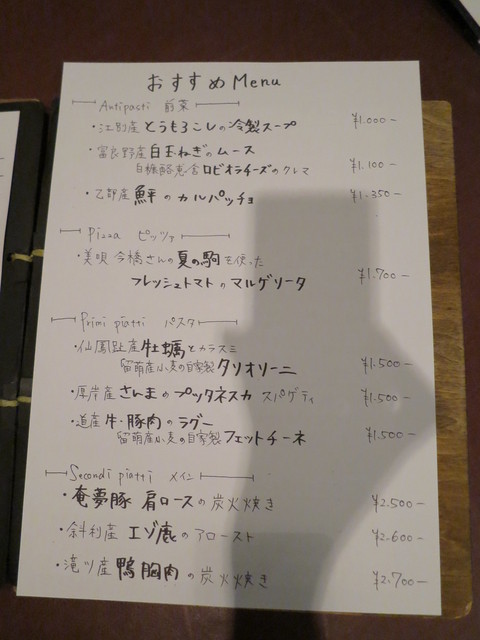 おすすめMenu
Antipasti 前菜
・江別産とうもろこしの冷製スープ ¥1.000-
・富良野産白玉ねぎのムース
白糠酪恵舎ロビオラチーズのクレマ ¥1.100-
・乙部産鮃のカルパッチョ ¥1.350-
Pizza ピッツァ
・美唄今橋さんの夏の駒を使った
フレッシュトマトのマルゲリータ ¥1.700-
Primi piatti パスタ
・仙鳳趾産牡蠣とカラスミ
留萌産小麦の自家製タリオリーニ ¥1.500-
・厚岸産さんまのプッタネスカ スパゲティ ¥1.500-
・道産牛・豚肉のラグー
留萌産小麦の自家製フェットチーネ ¥1.500-
Secondi piatti メイン
・奄夢豚 肩ロースの炭火焼き ¥2.500-
・斜利産エゾ鹿のアロースト ¥2.600-
・滝ツ産鴨胸肉の炭火焼き ¥2.700-